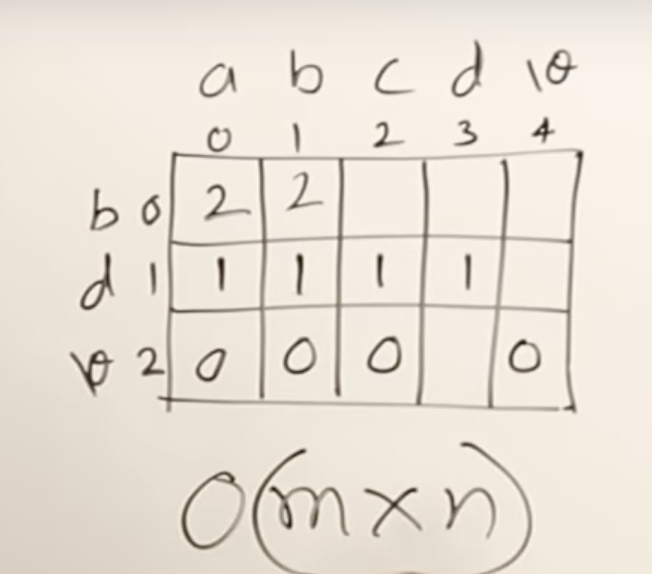 a b c d \0
0 1 2 3 4
b 0 2 2
d 1 1 1 1 1
\0 2 0 0 0 0
O(m×n)